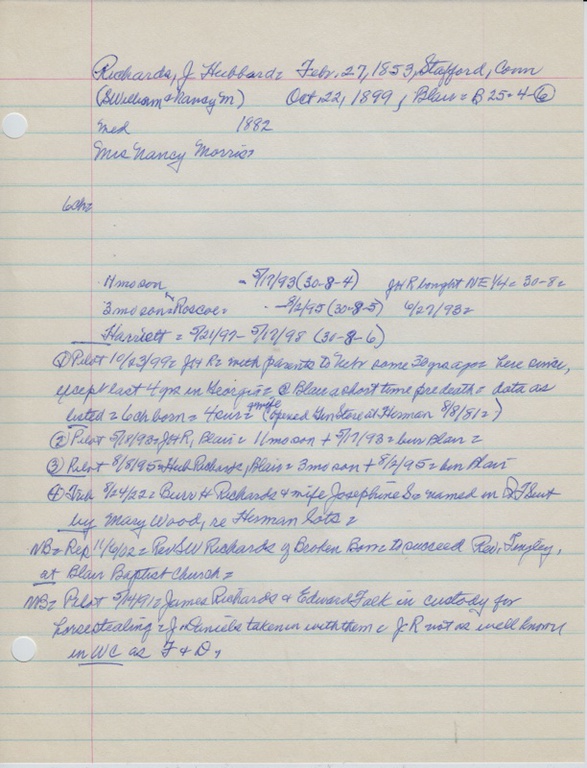 Richards, J. Hubbard= Febr. 27, 1853, Stafford, Conn
(S William & Nancy M) Oct. 22, 1899, Blair = B 25-4-6
med 1882
Mrs Nancy Morris,
6ch=
11 mo son - 5/17/93 (30-8-4) JHR bought NE 1/4= 30-8=
3 mo son=Roscoe= - 8/2/95 (30-8-5) 6/27/93=
Harriett = 5/21/97- 5/17/98 (30-8-6)
① Pilot 10/23/99= JHR= with parents to Nebr some 30 yrs ago= here since,
except last 4 yrs in Georgia= @ Blair a short time pre death= data as
listed = 6 ch born = 4 sur= & wife (opened Gen Store at Herman 8/8/81=)
② Pilot 5/18/93= JHR, Blair= 11 mo son + 5/17/93= bur Blair=
③ Pilot 8/8/95= Hub Richards, Blair= 3 mo son + 8/2/95= bur Blair
④ Trib 8/24/22= Burr H Richards & wife Josephine S= named in QT Suit
by Mary Wood, re Herman lots=
NB= Rep 11/6/02= Rev SW Richards of Broken Bow= to succeed Rev. Tingley,
at Blair Baptist Church=
NB= Pilot 5/14/91= James Richards & Edward Falk in custody for
horsestealing= J. Daniels taken in with them= JR not as well known
in WC as F & D,